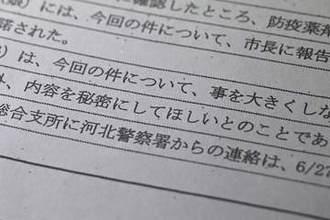 確認したところ、防疫薬剤
）には、今回の件について、市長に報告
諾された。
）は、今回の件について、事を大きくしな
、内容を秘密にしてほしいとのことであ
総合支所に河北警察署からの連絡は、6/27